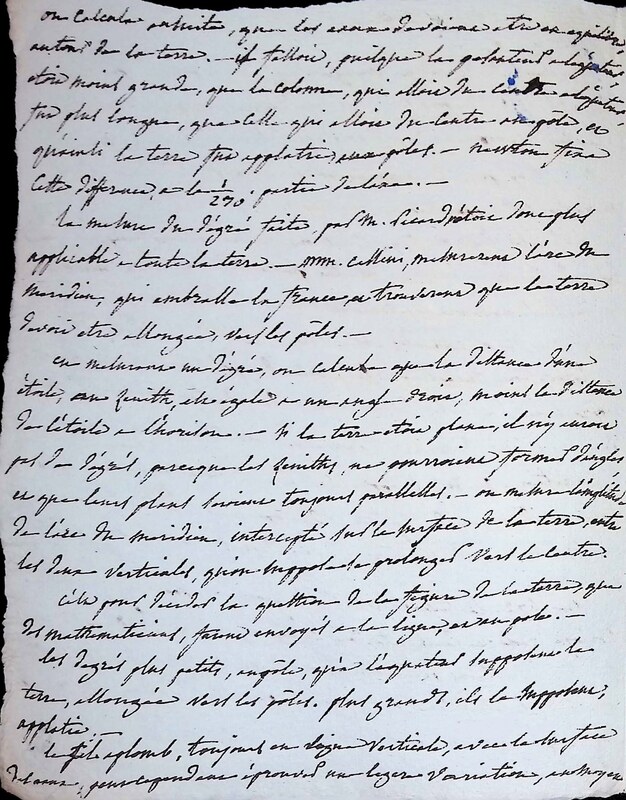 on calcula ensuite, que les eaux devoient etre en equilibre
autour de la terre. — il falloit, puisque la pesanteur a l'equateur
etoit moins grande, que la colonne, qui alloit du centre a l'equateur
fut plus longue, que celle qui alloit du centre au pôle, et
qu'ainsi la terre fut applatie aux pôles. — newton, fixa
cette difference, a la 1/230e partie de l'axe. —
la mesure du dégré faite, par M. Picard n'étoit donc plus
applicable a toute la terre. — mm. Cassini, mesurerent l'arc du
méridien, qui embrasse la france et trouverent que la terre
devoit etre allongée, vers les pôles. —
en mesurant un dégré, on calcule que la distance d'une
étoile, au zenith, est égale a un angle droit, moins la distance
de l'étoile a l'horison. — si la terre etoit plane, il n'y auroit
pas de dégrés, parceque les zeniths, ne pourroient former d'angles
et que leurs plans seroient toujours parallelles. — on mesure l'amplitude
de l'arc du meridien, intercepté sur la surface de la terre, entre
les deux verticales, qu'on suppose se prolonger vers le centre.
C'est pour décider la question de la figure de la terre, que
des mathematiciens, furent envoyés a la ligne, et au pole. —
les dégrés plus petits, au pôle, qu'a l'equateur supposent la
terre, allongée vers les pôles. plus grands, ils la supposent,
applatie. —
le fil aplomb, toujours en ligne verticale, avec la surface
des eaux, peut cependant éprouver un leger variation, au moyen